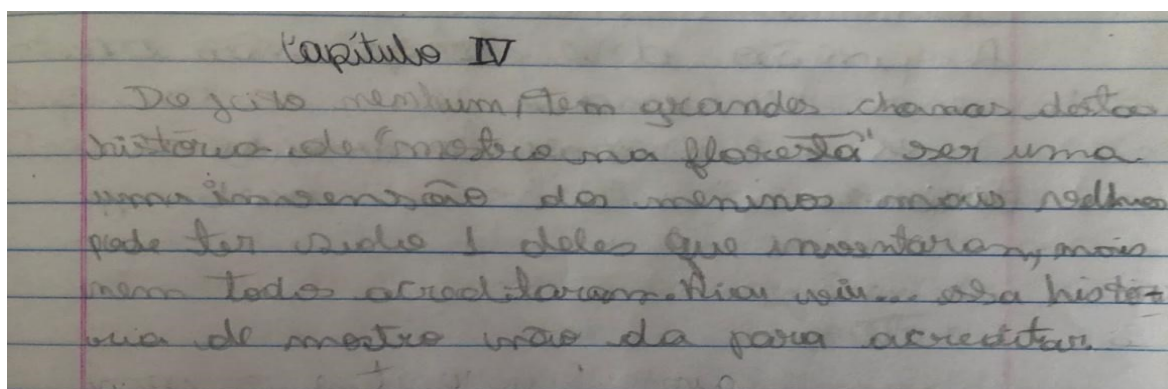 Capítulo IV
De jeito nenhum, tem grandes chamas desta
história de "mostro na floresta" ser uma
uma invensão dos meninos mais velhos
pode ter sido 1 deles que inventaram, mais
nem todos acreditaram. viu... essa histó-
ria de mostro não da para acreditar.